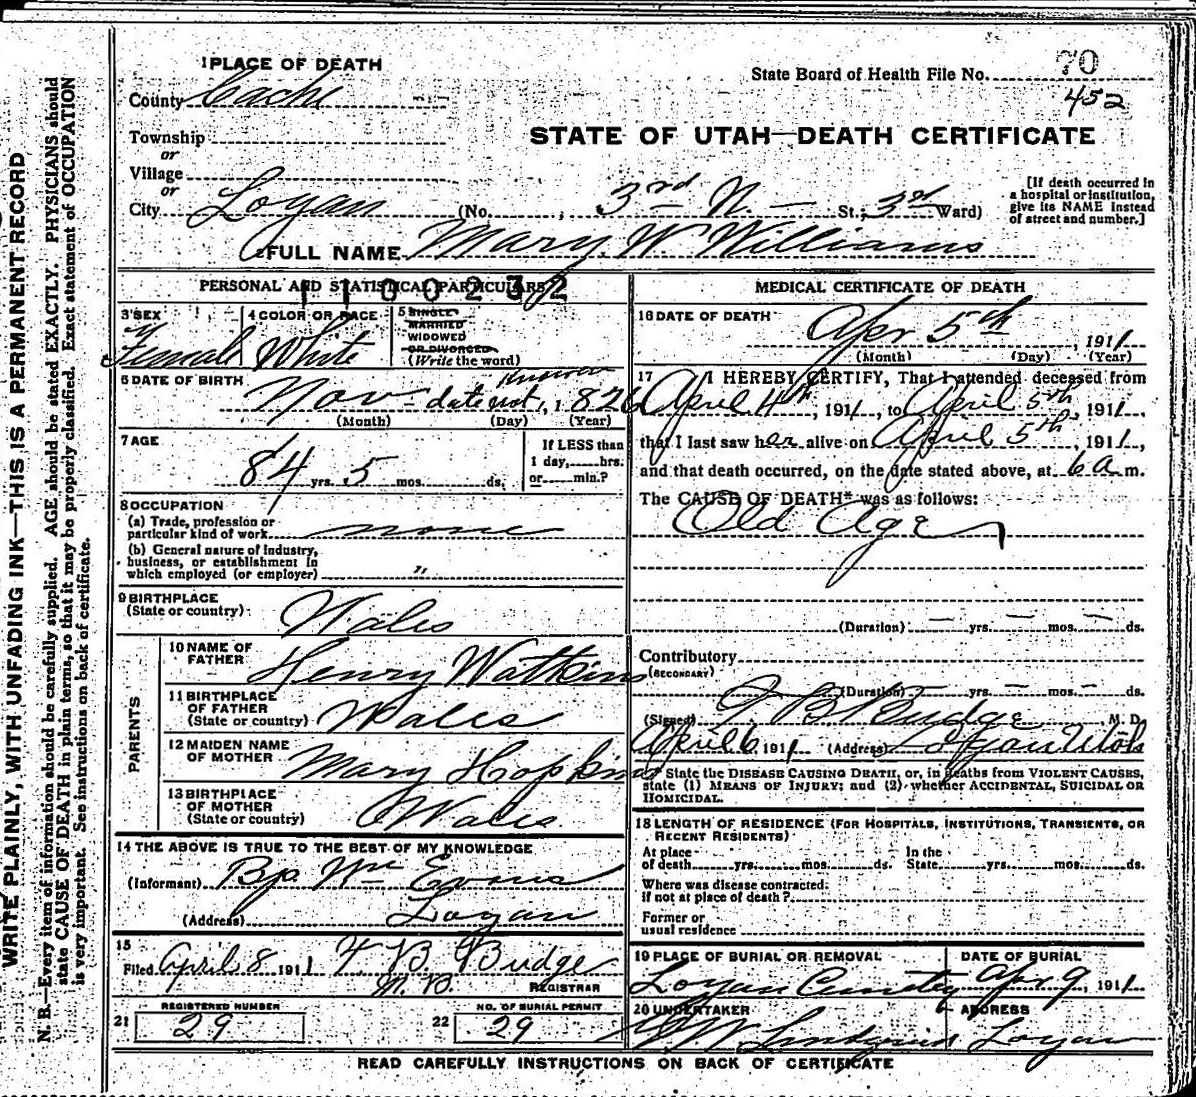 WRITE PLAINLY, WITH UNFADING INK—THIS IS A PERMANENT RECORD
N. B.—Every item of information should be carefully supplied. AGE should be stated EXACTLY. PHYSICIANS should
state CAUSE OF DEATH in plain terms, so that it may be properly classified. Exact statement of OCCUPATION
is very important. See instructions on back of certificate.
1 PLACE OF DEATH
County Cache
Township
or
Village
or
City Logan (No. , 3rd N. — St.; 3rd Ward)
State Board of Health File No. 70
452
STATE OF UTAH—DEATH CERTIFICATE
[If death occurred in
a hospital or institution,
give its NAME instead
of street and number.]
2 FULL NAME Mary W. Williams
PERSONAL AND STATISTICAL PARTICULARS
1100232
3 SEX
Female
4 COLOR OR RACE
White
5 SINGLE
MARRIED
WIDOWED
OR DIVORCED
(Write the word)
6 DATE OF BIRTH
Nov — date not known, 1826
(Month) (Day) (Year)
7 AGE
84 yrs. 5 mos. ds.
If LESS than
1 day, hrs.
or min.?
8 OCCUPATION
(a) Trade, profession or
particular kind of work none
(b) General nature of industry,
business, or establishment in
which employed (or employer) "
9 BIRTHPLACE
(State or country)
Wales
PARENTS
10 NAME OF
FATHER Henry Watkins
11 BIRTHPLACE
OF FATHER
(State or country) Wales
12 MAIDEN NAME
OF MOTHER Mary Hopkins
13 BIRTHPLACE
OF MOTHER
(State or country) Wales
14 THE ABOVE IS TRUE TO THE BEST OF MY KNOWLEDGE
(Informant) Bp. Wm Evans
(Address) Logan
15
Filed April 8 1911 F B Budge
M. D. REGISTRAR
21 REGISTERED NUMBER
29
22 NO. OF BURIAL PERMIT
29
MEDICAL CERTIFICATE OF DEATH
16 DATE OF DEATH
Apr 5th, 1911
(Month) (Day) (Year)
17 I HEREBY CERTIFY, That I attended deceased from
April 4th, 1911, to April 5th, 1911,
that I last saw her alive on April 5th, 1911,
and that death occurred, on the date stated above, at 6 a m.
The CAUSE OF DEATH* was as follows:
Old Age
(Duration) — yrs. — mos. — ds.
Contributory
(SECONDARY)
(Duration) — yrs. — mos. — ds.
(Signed) B Budge M. D.
April 6 1911 (Address) Logan Utah
* State the DISEASE CAUSING DEATH, or, in deaths from VIOLENT CAUSES,
state (1) MEANS OF INJURY; and (2) whether ACCIDENTAL, SUICIDAL OR
HOMICIDAL.
18 LENGTH OF RESIDENCE (FOR HOSPITALS, INSTITUTIONS, TRANSIENTS, OR
RECENT RESIDENTS)
At place In the
of death yrs. mos. ds. State yrs. mos. ds.
Where was disease contracted,
if not at place of death?
Former or
usual residence
19 PLACE OF BURIAL OR REMOVAL
Logan Cemetery
DATE OF BURIAL
Apr 9, 1911
20 UNDERTAKER
Lindquist
ADDRESS
Logan
READ CAREFULLY INSTRUCTIONS ON BACK OF CERTIFICATE